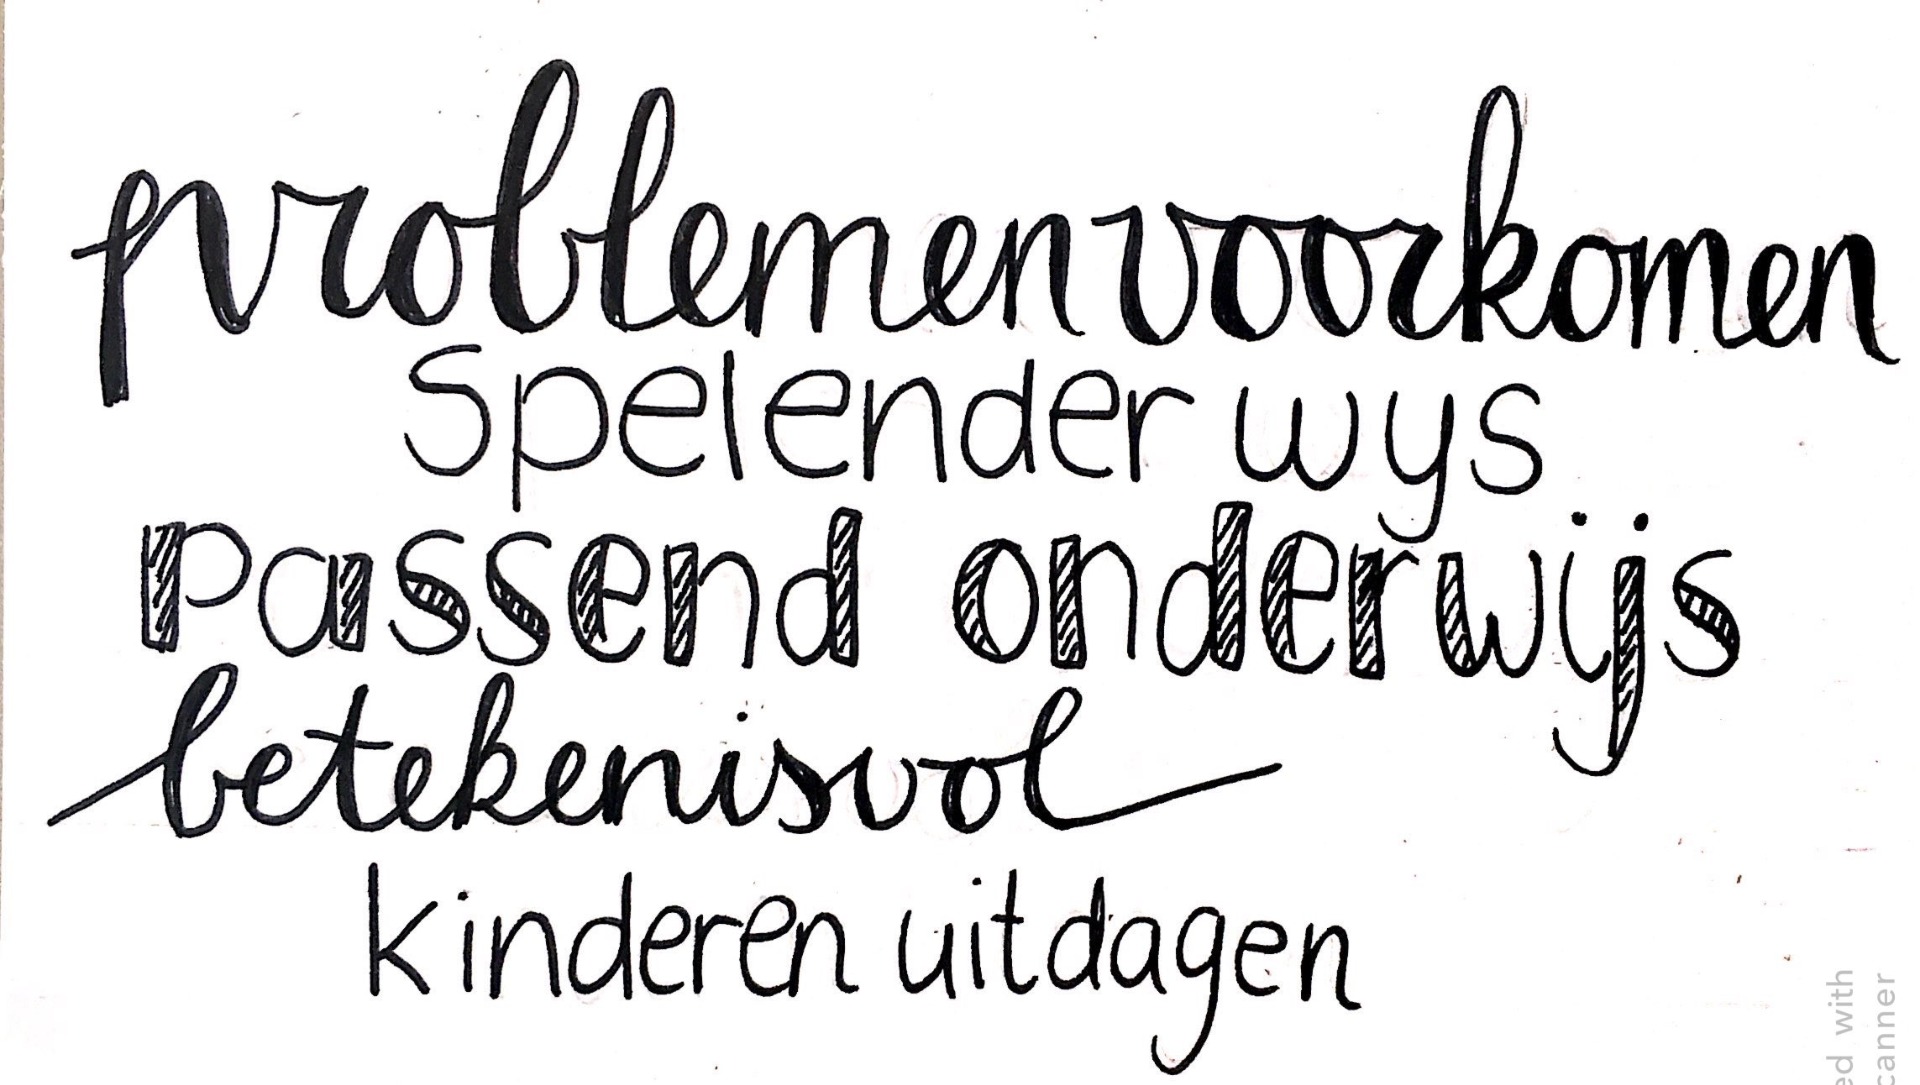 problemen voorkomen
Spelender wys
passend onderwijs
betekenisvol
kinderen uitdagen
ed with
canner